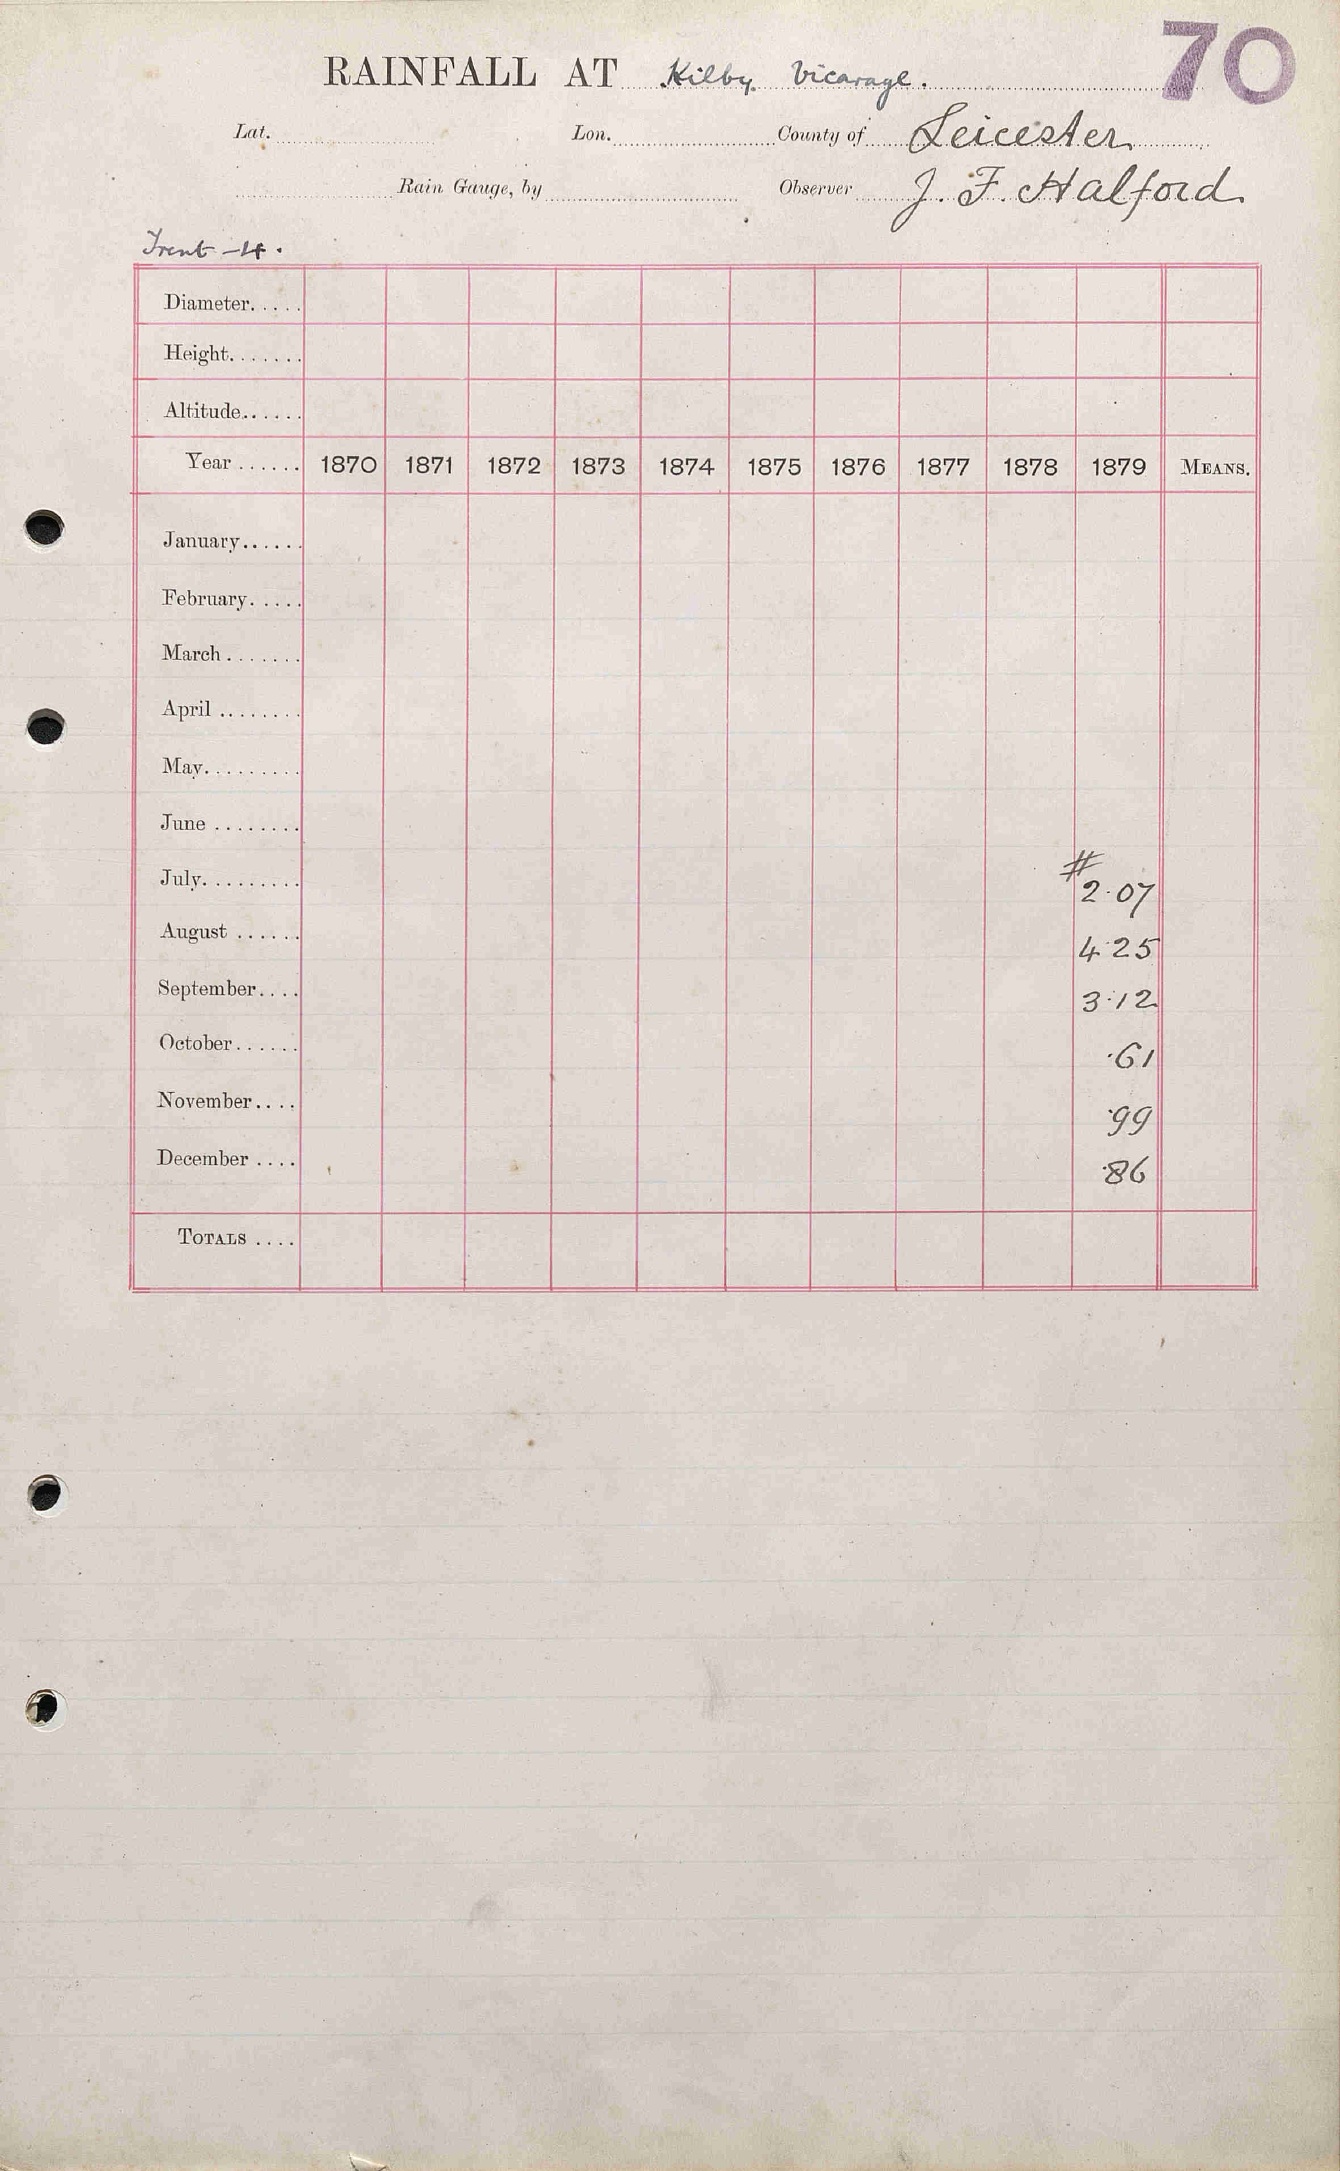 70
RAINFALL AT Kilby Vicarage.
Lat. Lon. County of Leicester
Rain Gauge, by Observer J. F. Halford.
Trent - 4.
Diameter.....
Height.......
Altitude......
Year ...... 1870 1871 1872 1873 1874 1875 1876 1877 1878 1879 MEANS.
January......
February.....
March.......
April ........
May.........
June ........
#
July......... 2.07
August ...... 4.25
September.... 3.12
October...... .61
November.... .99
December .... .86
TOTALS ....